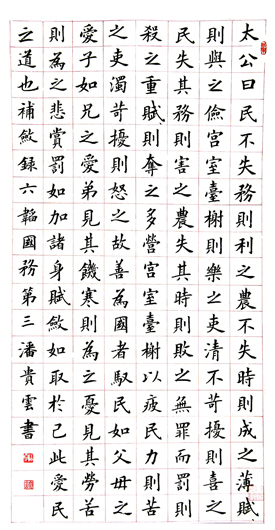 太公曰民不失務則利之農不失時則成之薄賦
則與之儉宮室臺榭則樂之吏清不苛擾則喜之
民失其務則害之農失其時則敗之無罪而罰則
殺之重賦則奪之多營宮室臺榭以疲民力則苦
之吏濁苛擾則怒之故善為國者馭民如父母之
愛子如兄之愛弟見其饑寒則為之憂見其勞苦
則為之悲賞罰如加諸身賦斂如取於己此愛民
之道也補斂録六韜國務第三潘貴雲書